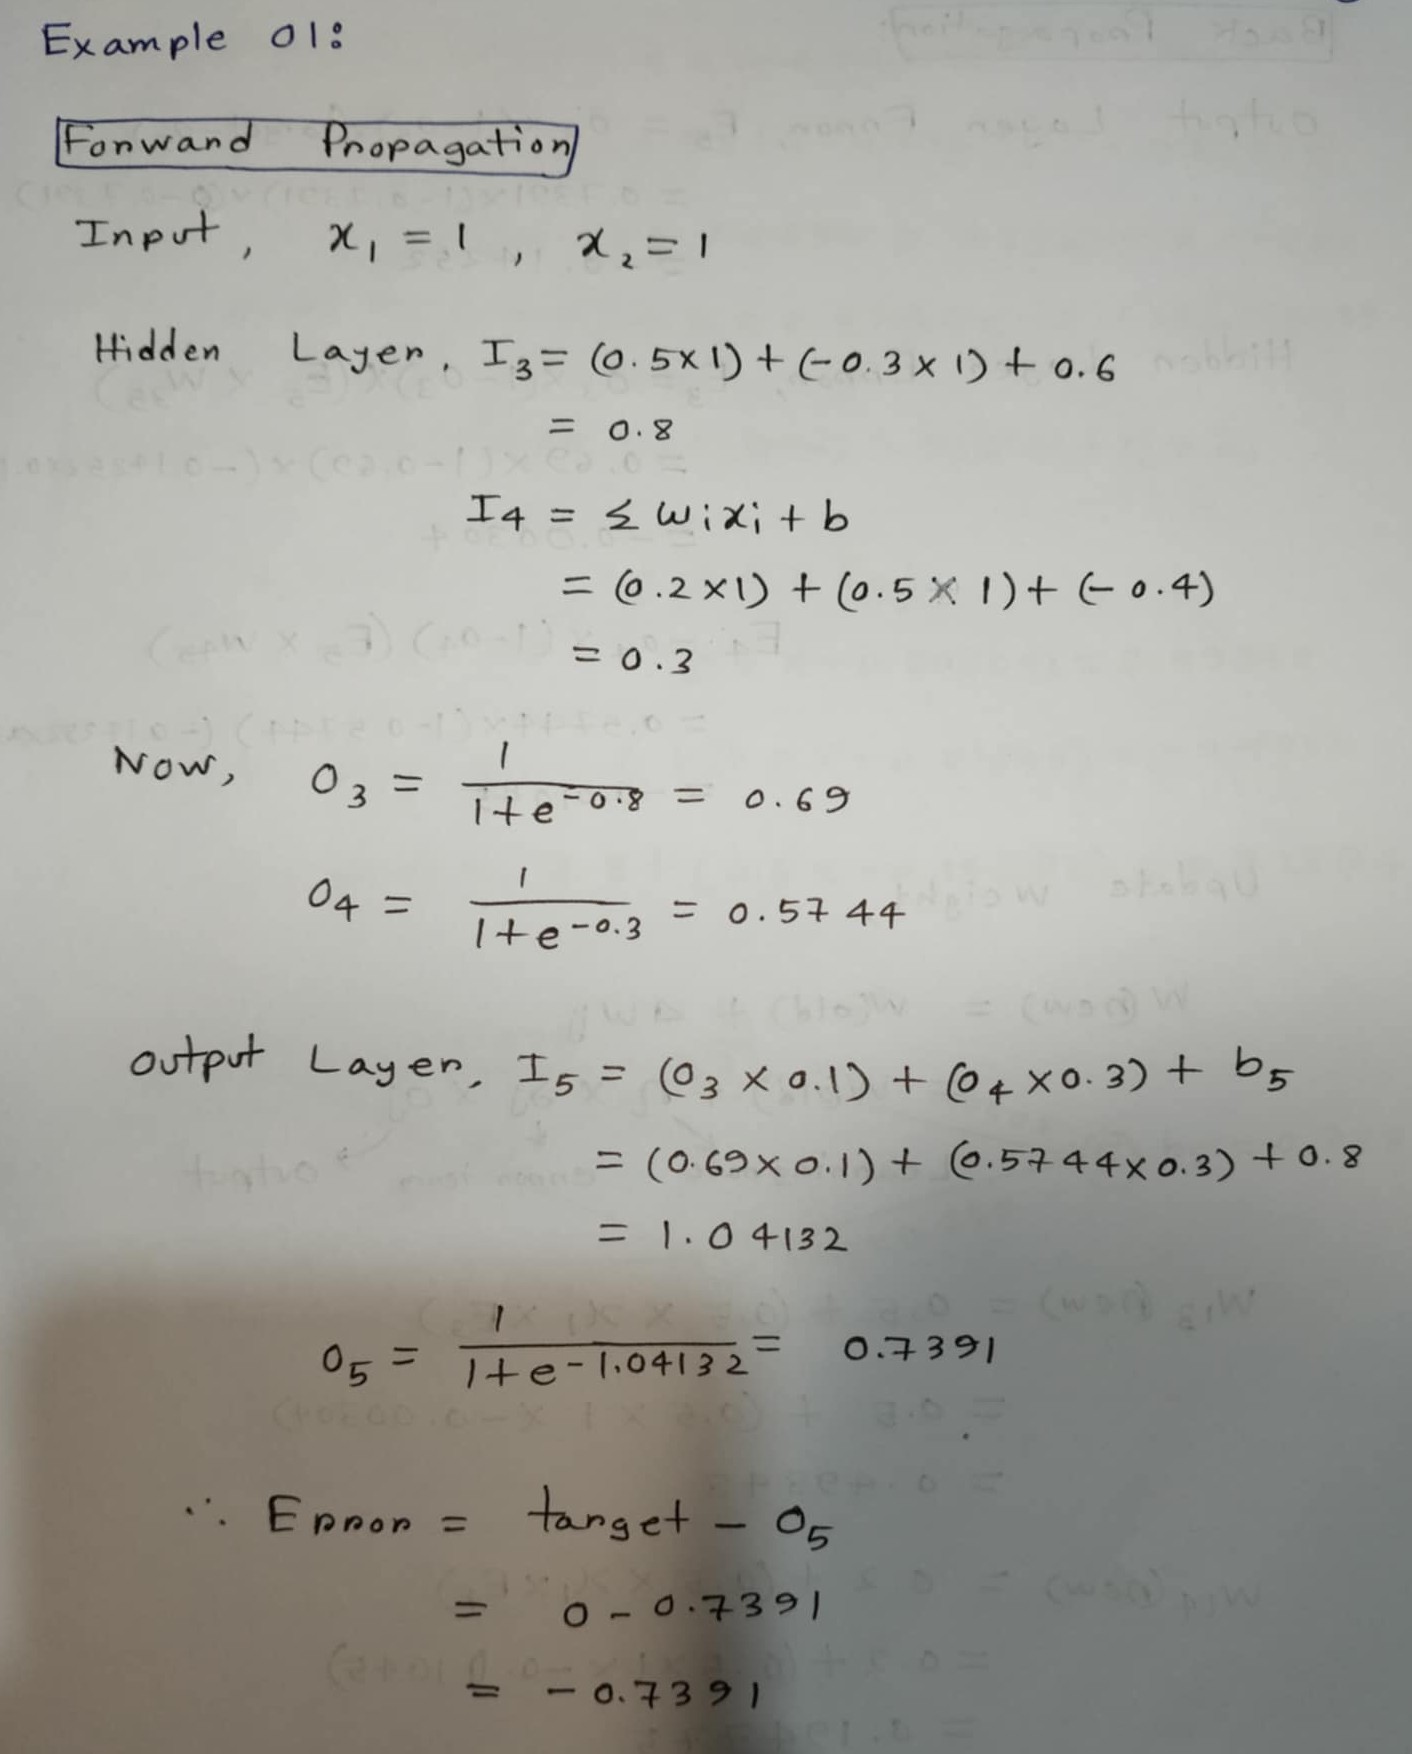 Example 01:
Forward Propagation
Input, x₁ = 1, x₂ = 1
Hidden Layer, I₃ = (0.5×1) + (-0.3×1) + 0.6
= 0.8
I₄ = Σ wᵢxᵢ + b
= (0.2×1) + (0.5×1) + (-0.4)
= 0.3
Now, O₃ = 1/(1+e^-0.8) = 0.69
O₄ = 1/(1+e^-0.3) = 0.5744
Output Layer, I₅ = (O₃ × 0.1) + (O₄ × 0.3) + b₅
= (0.69×0.1) + (0.5744×0.3) + 0.8
= 1.04132
O₅ = 1/(1+e-1.04132) = 0.7391
∴ Error = target - O₅
= 0 - 0.7391
= -0.7391